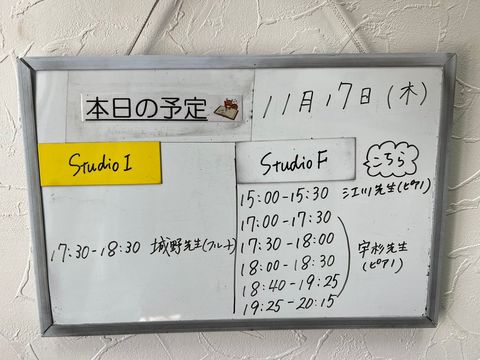 本日の予定
11月17日(木)
Studio I
17:30-18:30 城野先生(フルート)
Studio F
こちら
15:00-15:30 江川先生(ピアノ)
17:00-17:30
17:30-18:00
18:00-18:30
18:40-19:25
19:25-20:15
宇杉先生
(ピアノ)